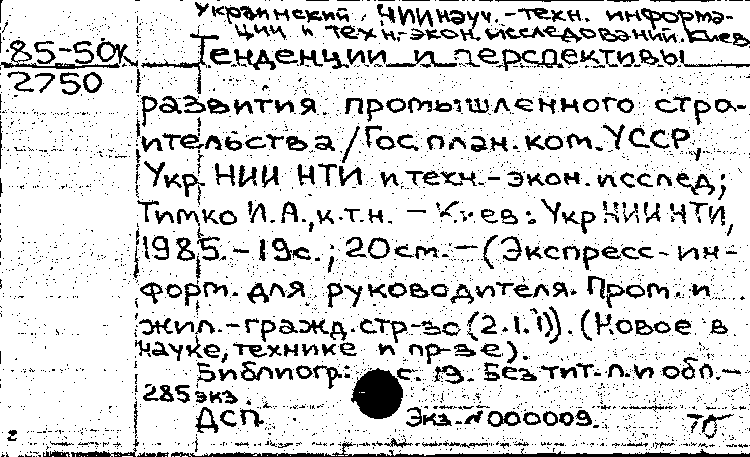 Украинский НИИ науч.-техн. информа-
ции и техн.-экон. исследований. Киев
85-50к Тенденции и перспективы
2750
развития промышленного стро-
ительства / Гос. план. ком. УССР,
Укр. НИИ НТИ и техн.-экон. исслед;
Тимко И.А., к.т.н. - Киев: УкрНИИНТИ,
1985. - 19с.; 20см. - (Экспресс-ин-
форм. для руководителя. Пром. и
жил.-гражд. стр-во (2.1.1)). (Новое в
науке, технике и пр-ве).
Библиогр.: с. 19. Без тит. л. и обл. -
285 экз.
ДСП Экз. №000009. 70
2